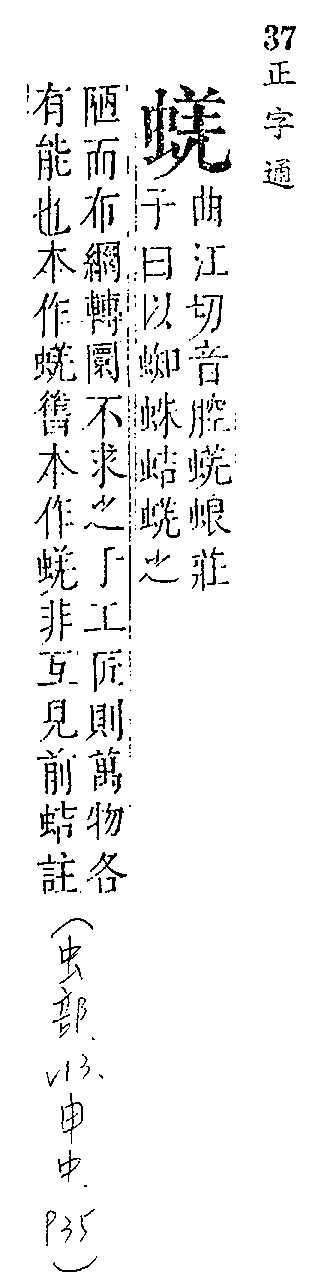 37 正字通
蜣
曲江切音腔蜣蜋莊
子曰以蜘蛛蛣蜣之
陋而布網轉圜不求之于工匠則萬物各
有能也本作蜣舊本作蜣非互見前蛣註
(虫部. v13. 申中. P35)